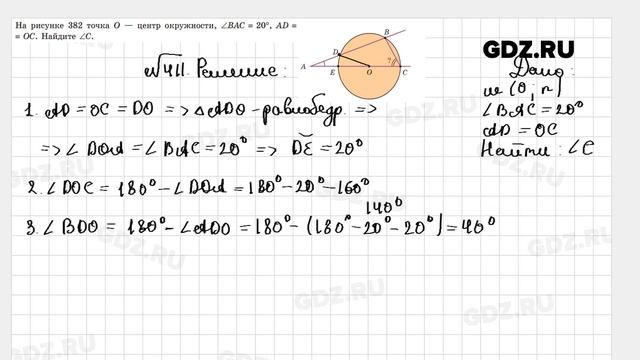 На рисунке 382 точка O — центр окружности, ∠BAC = 20°, AD =
= OC. Найдите ∠C.
GDZ.RU
№411. Решение:
B
D
A
E
O
C
?
Дано:
∠BAC = 20°
AD = OC
Найти: ∠C
1. AD = OC = DO => △ADO - равнобедр. =>
=> ∠DOA = ∠BAC = 20° => DE = 20°
2. ∠DOC = 180° - ∠DOA = 180° - 20° - 160°
140°
3. ∠BDO = 180° - ∠ADO = 180° - (180° - 20° - 20°) = 40°
GDZ.RU
GDZ.RU
GDZ.RU